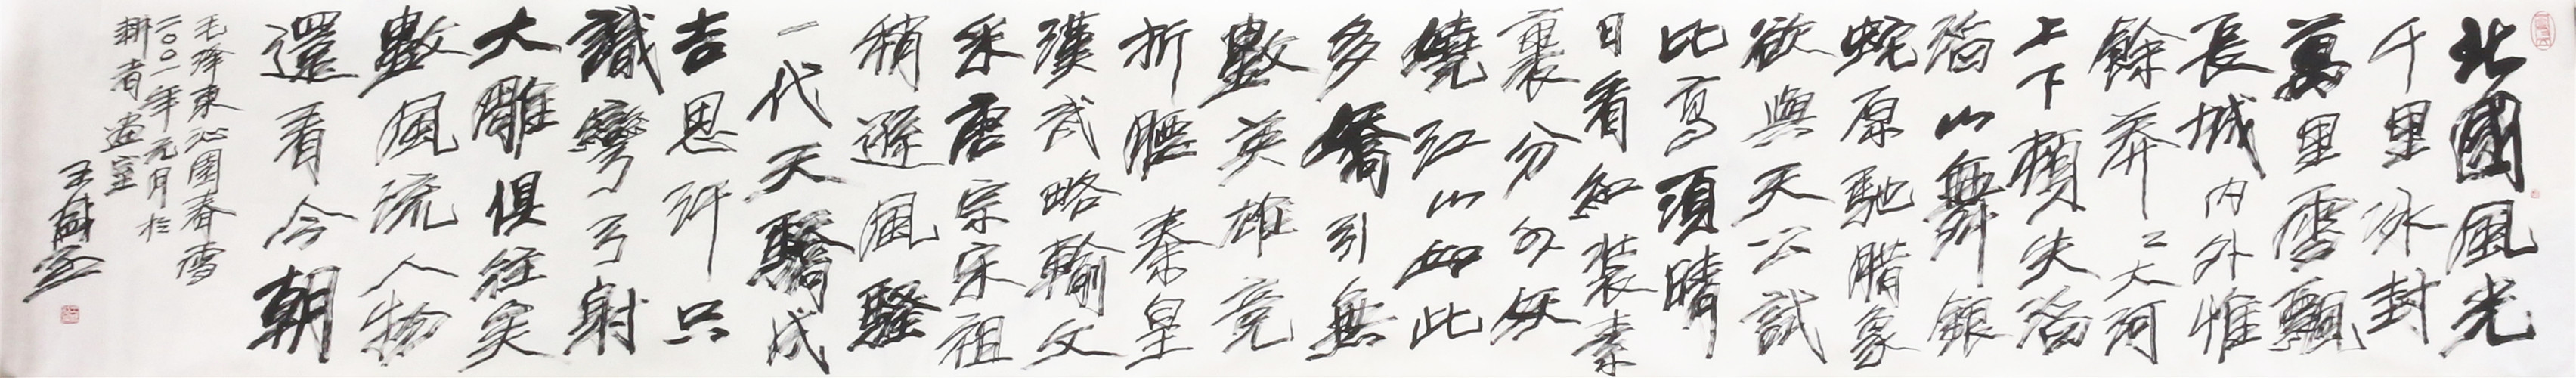 北國風光
千里冰封
萬里雪飄
長城內外惟
餘莽〻大河
上下頓失滔
滔山舞銀
蛇原馳腊象
欲與天公試
比高須晴
日看紅装素
裹分外妖
嬈江山如此
多嬌引無
數英雄竞
折腰秦皇
漢武略輸文
采唐宗宋祖
稍遜風騷
一代天驕成
吉思汗只
識彎弓射
大雕俱往矣
數風流人物
還看今朝
毛澤東沁园春雪
二〇〇一年元月於
耕者画室